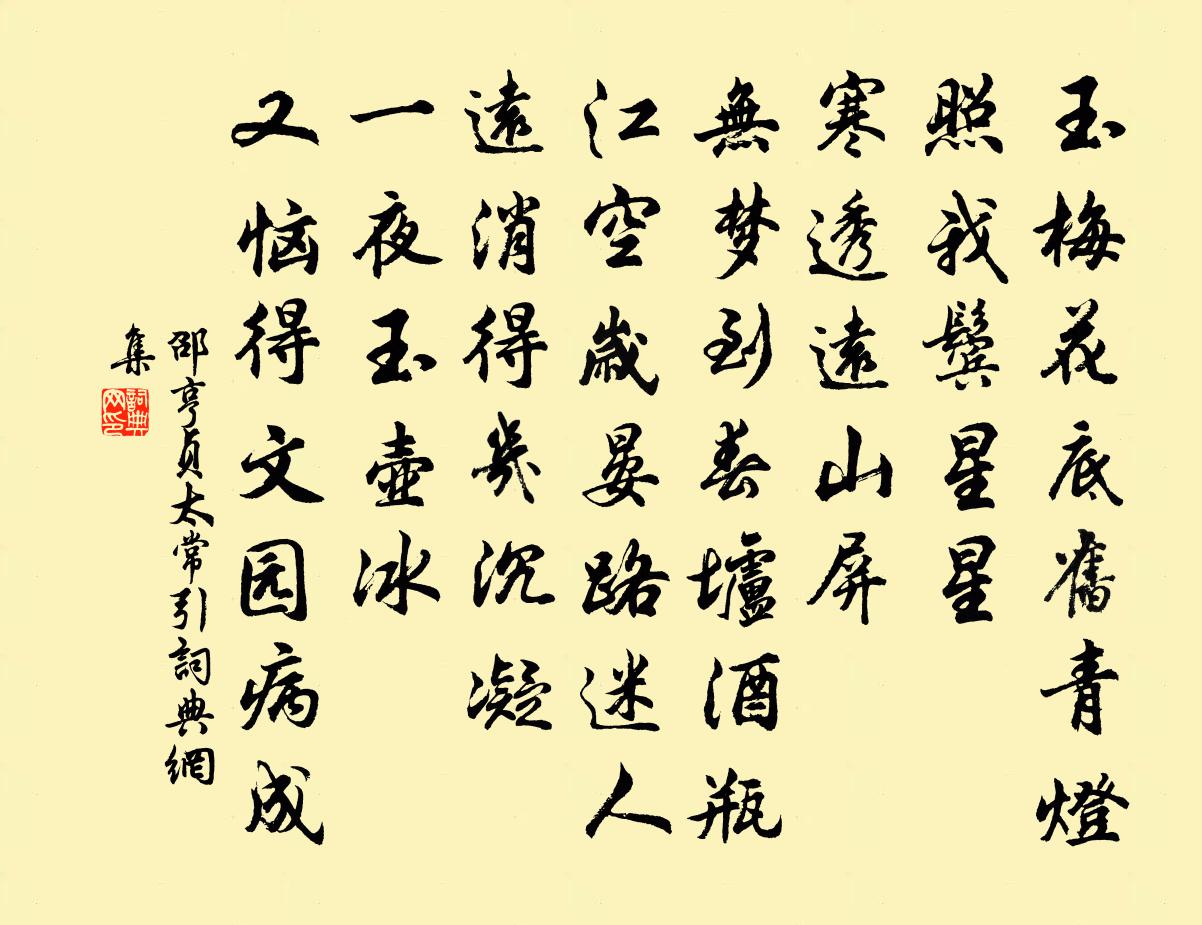 玉梅花底舊青燈
照我鬓星星
寒透遠山屏
無梦到春壚酒瓶
江空歲晏路迷人
遠消得幾沉凝
一夜玉壺冰
又恼得文园病成
邵亨貞太常引詞典網
集
詞典网印